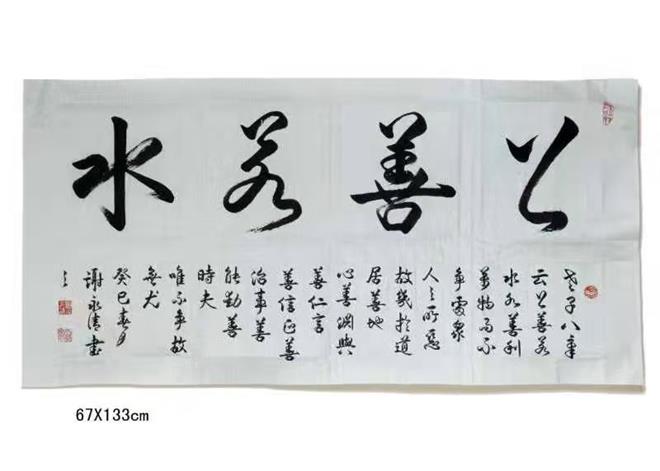 上善若水
老子八章
云上善若
水水善利
萬物而不
爭處衆
人之所惡
故幾於道
居善地
心善淵與
善仁言
善信正善
治事善
能動善
時夫
唯不爭故
無尤
癸巳春月
謝永清書
67X133cm